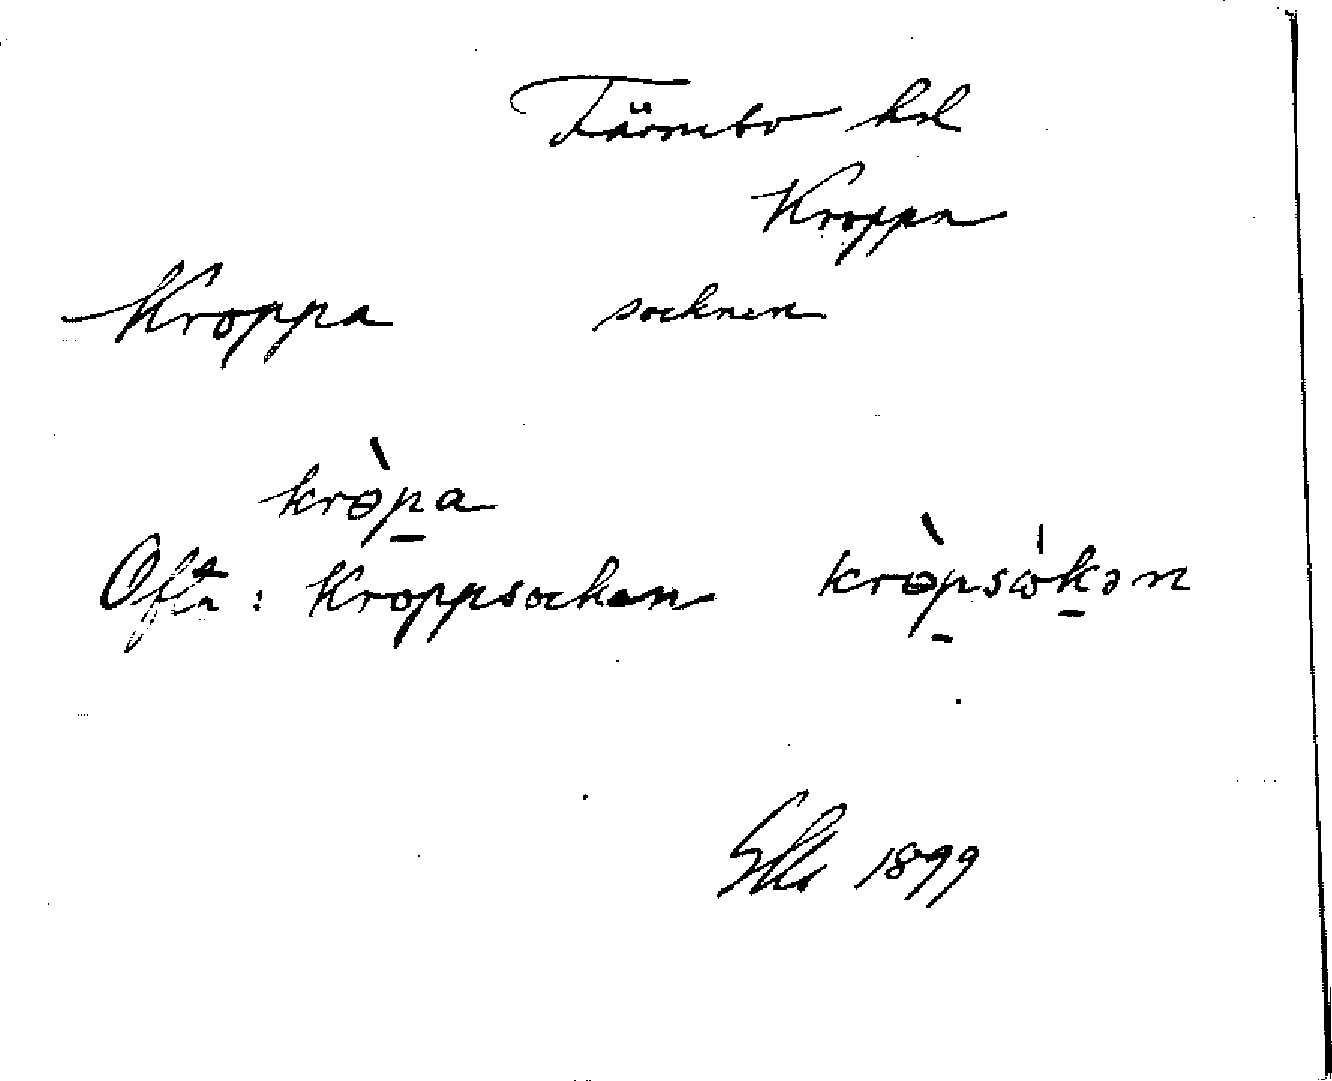 Färnebo hd
Kroppa
Kroppa socknen
krɵ̀p̠a
Ofta: Kroppsocken krɵ̀p̠sòk̠ən
1899